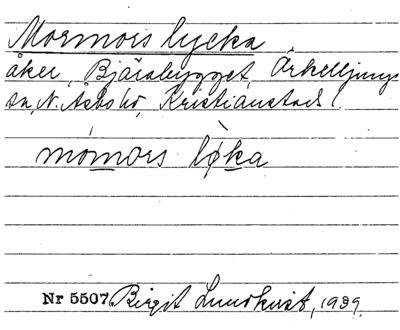 Mormors lycka
åker, Bjärabygget, Örkelljunga
sn, N. Åsbo hd, Kristianstads l.
mómors lø̀ka
Nr 5507. Birgit Lundkvist, 1939.